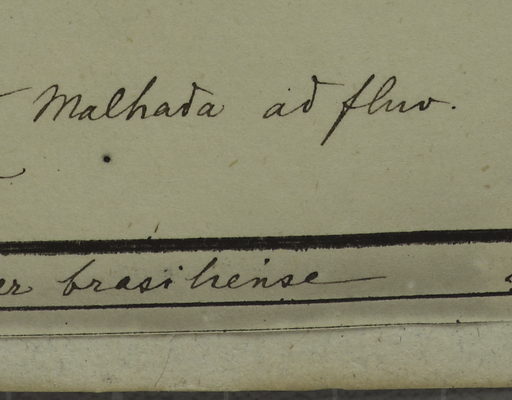 Malhada ad fluv.
er brasiliense